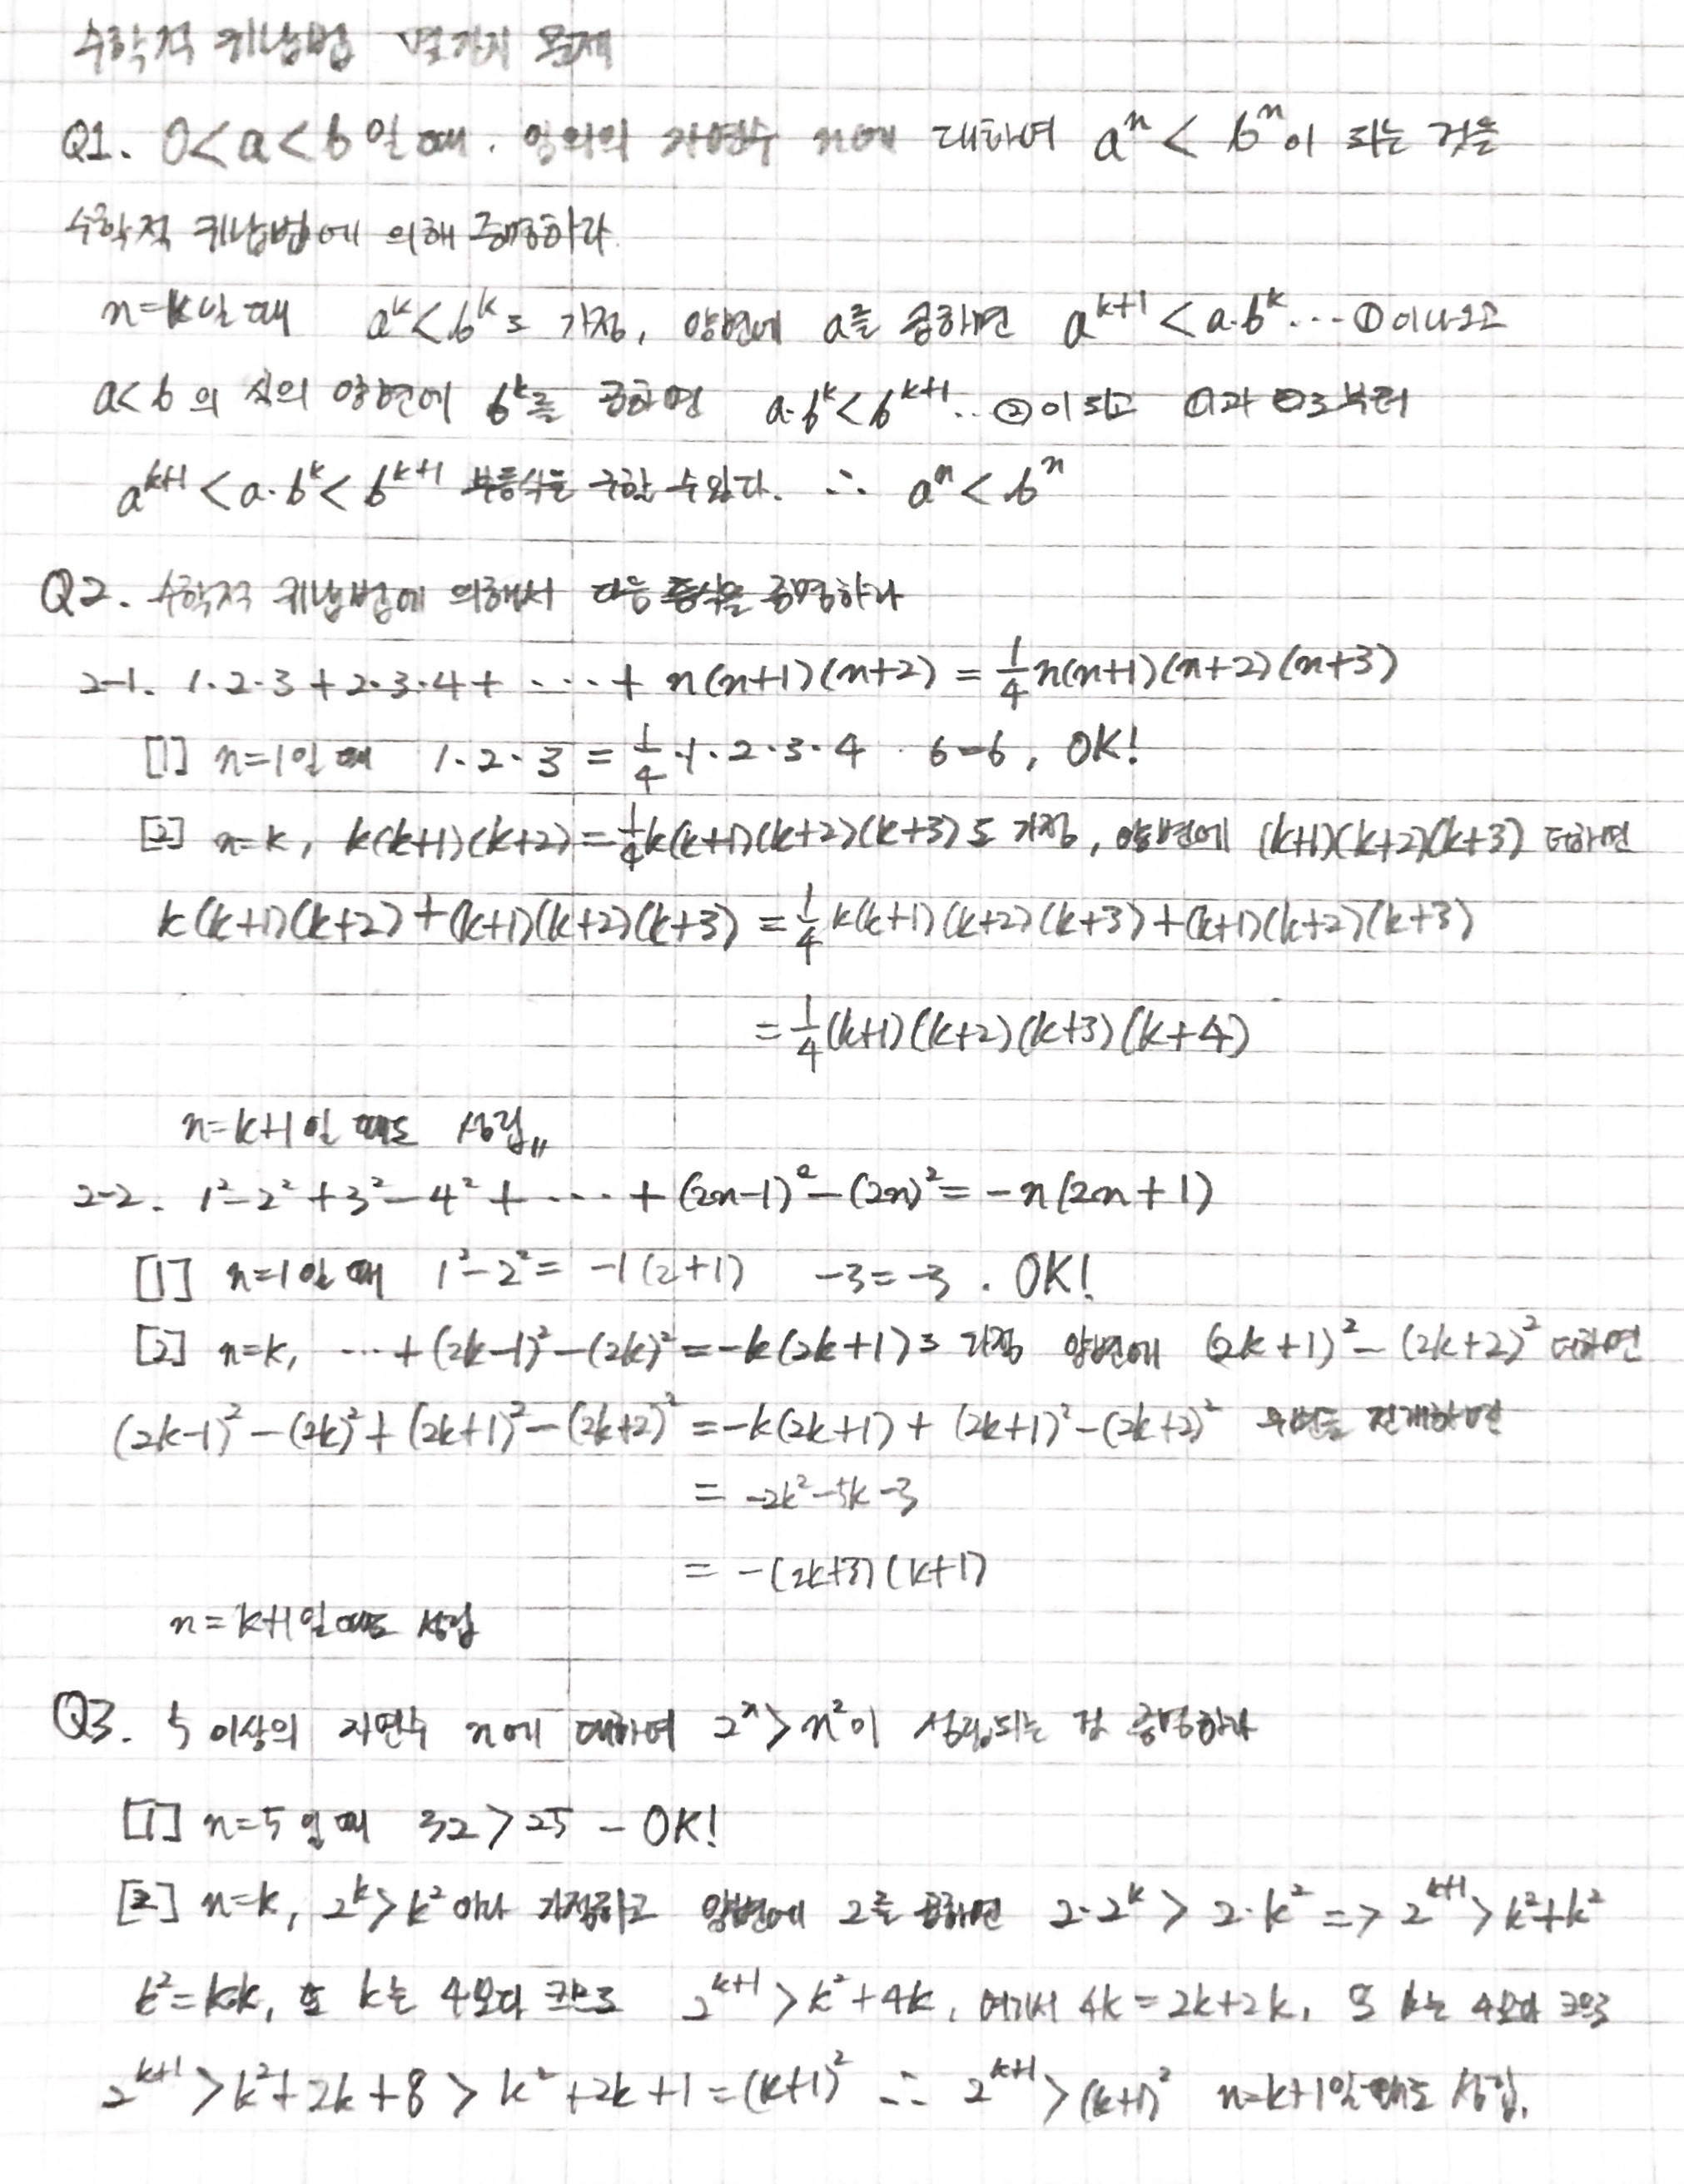 수학적 귀납법 몇가지 문제
Q1. 0<a<b일 때, 임의의 자연수 n에 대하여 aⁿ < bⁿ이 되는 것을
수학적 귀납법에 의해 증명하라.
n=k일 때 aᵏ<bᵏ로 가정, 양변에 a를 곱하면 aᵏ⁺¹ < a·bᵏ ··· ①이 나오고
a<b의 식의 양변에 bᵏ를 곱하면 a·bᵏ<bᵏ⁺¹ ·· ②이 되고 ①과 ②로부터
aᵏ⁺¹ < a·bᵏ < bᵏ⁺¹ 부등식을 구할 수 있다. ∴ aⁿ < bⁿ
Q2. 수학적 귀납법에 의해서 다음 등식을 증명하라
2-1. 1·2·3 + 2·3·4 + ···· + n(n+1)(n+2) = 1/4 n(n+1)(n+2)(n+3)
[1] n=1일 때 1·2·3 = 1/4·1·2·3·4 · 6=6, OK!
[2] n=k, k(k+1)(k+2) = 1/4 k(k+1)(k+2)(k+3)로 가정, 양변에 (k+1)(k+2)(k+3) 더하면
k(k+1)(k+2) + (k+1)(k+2)(k+3) = 1/4 k(k+1)(k+2)(k+3) + (k+1)(k+2)(k+3)
= 1/4 (k+1)(k+2)(k+3)(k+4)
n=k+1일 때도 성립〃
2-2. 1²-2²+3²-4²+ ···· + (2n-1)² - (2n)² = -n(2n+1)
[1] n=1일 때 1²-2² = -1(2+1) -3=-3. OK!
[2] n=k, ··· + (2k-1)² - (2k)² = -k(2k+1)로 가정 양변에 (2k+1)² - (2k+2)² 더하면
(2k-1)² - (2k)² + (2k+1)² - (2k+2)² = -k(2k+1) + (2k+1)² - (2k+2)² 우변을 전개하면
= -2k²-5k-3
= -(2k+3)(k+1)
n=k+1일 때도 성립
Q3. 5 이상의 자연수 n에 대하여 2ⁿ>n²이 성립되는 것 증명하라
[1] n=5일 때 32 > 25 - OK!
[2] n=k, 2ᵏ>k²이라 가정하고 양변에 2를 곱하면 2·2ᵏ > 2·k² => 2ᵏ⁺¹ > k²+k²
k²=k·k, 또 k는 4보다 크므로 2ᵏ⁺¹ > k²+4k, 여기서 4k=2k+2k, 또 k는 4보다 크므로
2ᵏ⁺¹ > k²+2k+8 > k²+2k+1 = (k+1)² ∴ 2ᵏ⁺¹ > (k+1)² n=k+1일 때도 성립.